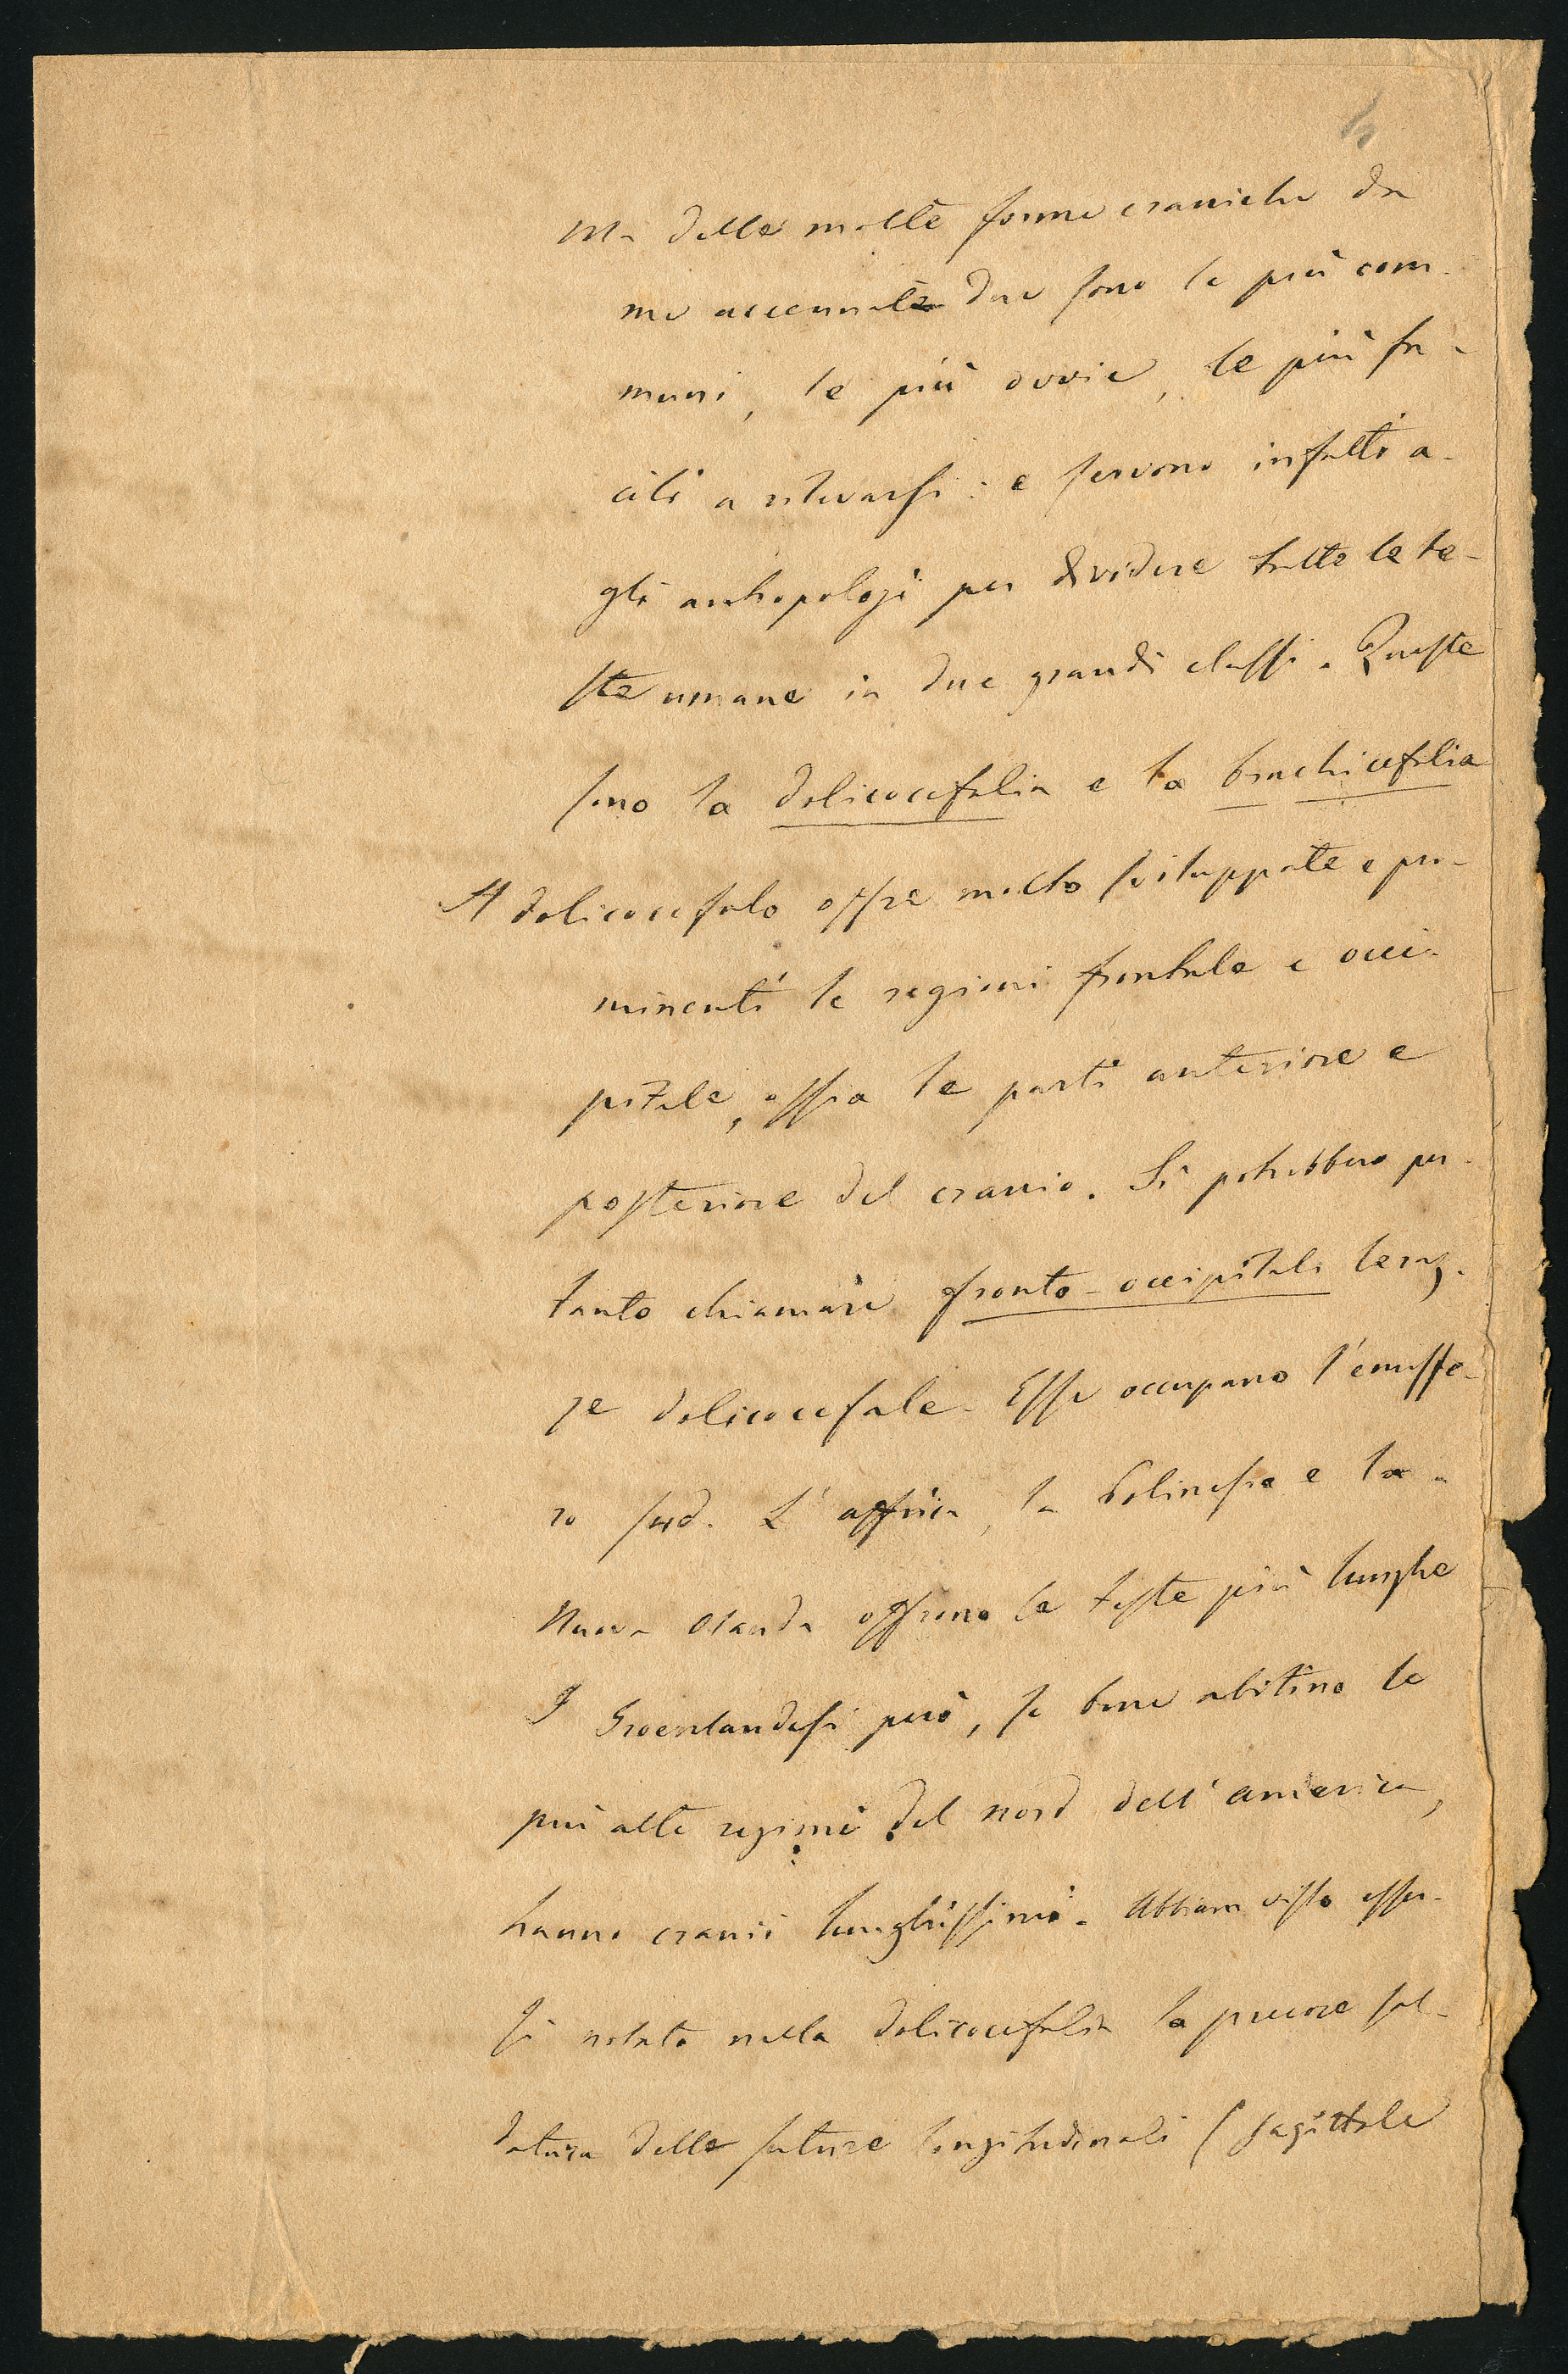 Ma delle molte forme craniche da
me accennate due sono le più com-
muni, le più ovvie, le più fa-
cili a rilevarsi: e servono infatti a-
gli antropologi per dividere tutte le te-
ste umane in due grandi classi. Queste
sono la dolicocefalia e la brachicefalia
Il dolicocefalo offre molto sviluppate e pro-
minenti le regioni frontale e occi-
pitale, ossia le parti anteriore e
posteriore del cranio. Si potrebbero per-
tanto chiamare fronto-occipitali le raz-
ze dolicocefale. Esse occupano l'emisfe-
ro sud. L'affrica, la Polinesia e la
Nuova Olanda offrono le teste più lunghe
I Groenlandesi però, se bene abitino le
più alte regioni del nord dell'america,
hanno cranii lunghissimi. Abbiam visto esser-
si notato nella dolicocefalia la precoce sal-
datura delle suture longitudinali (sagittale